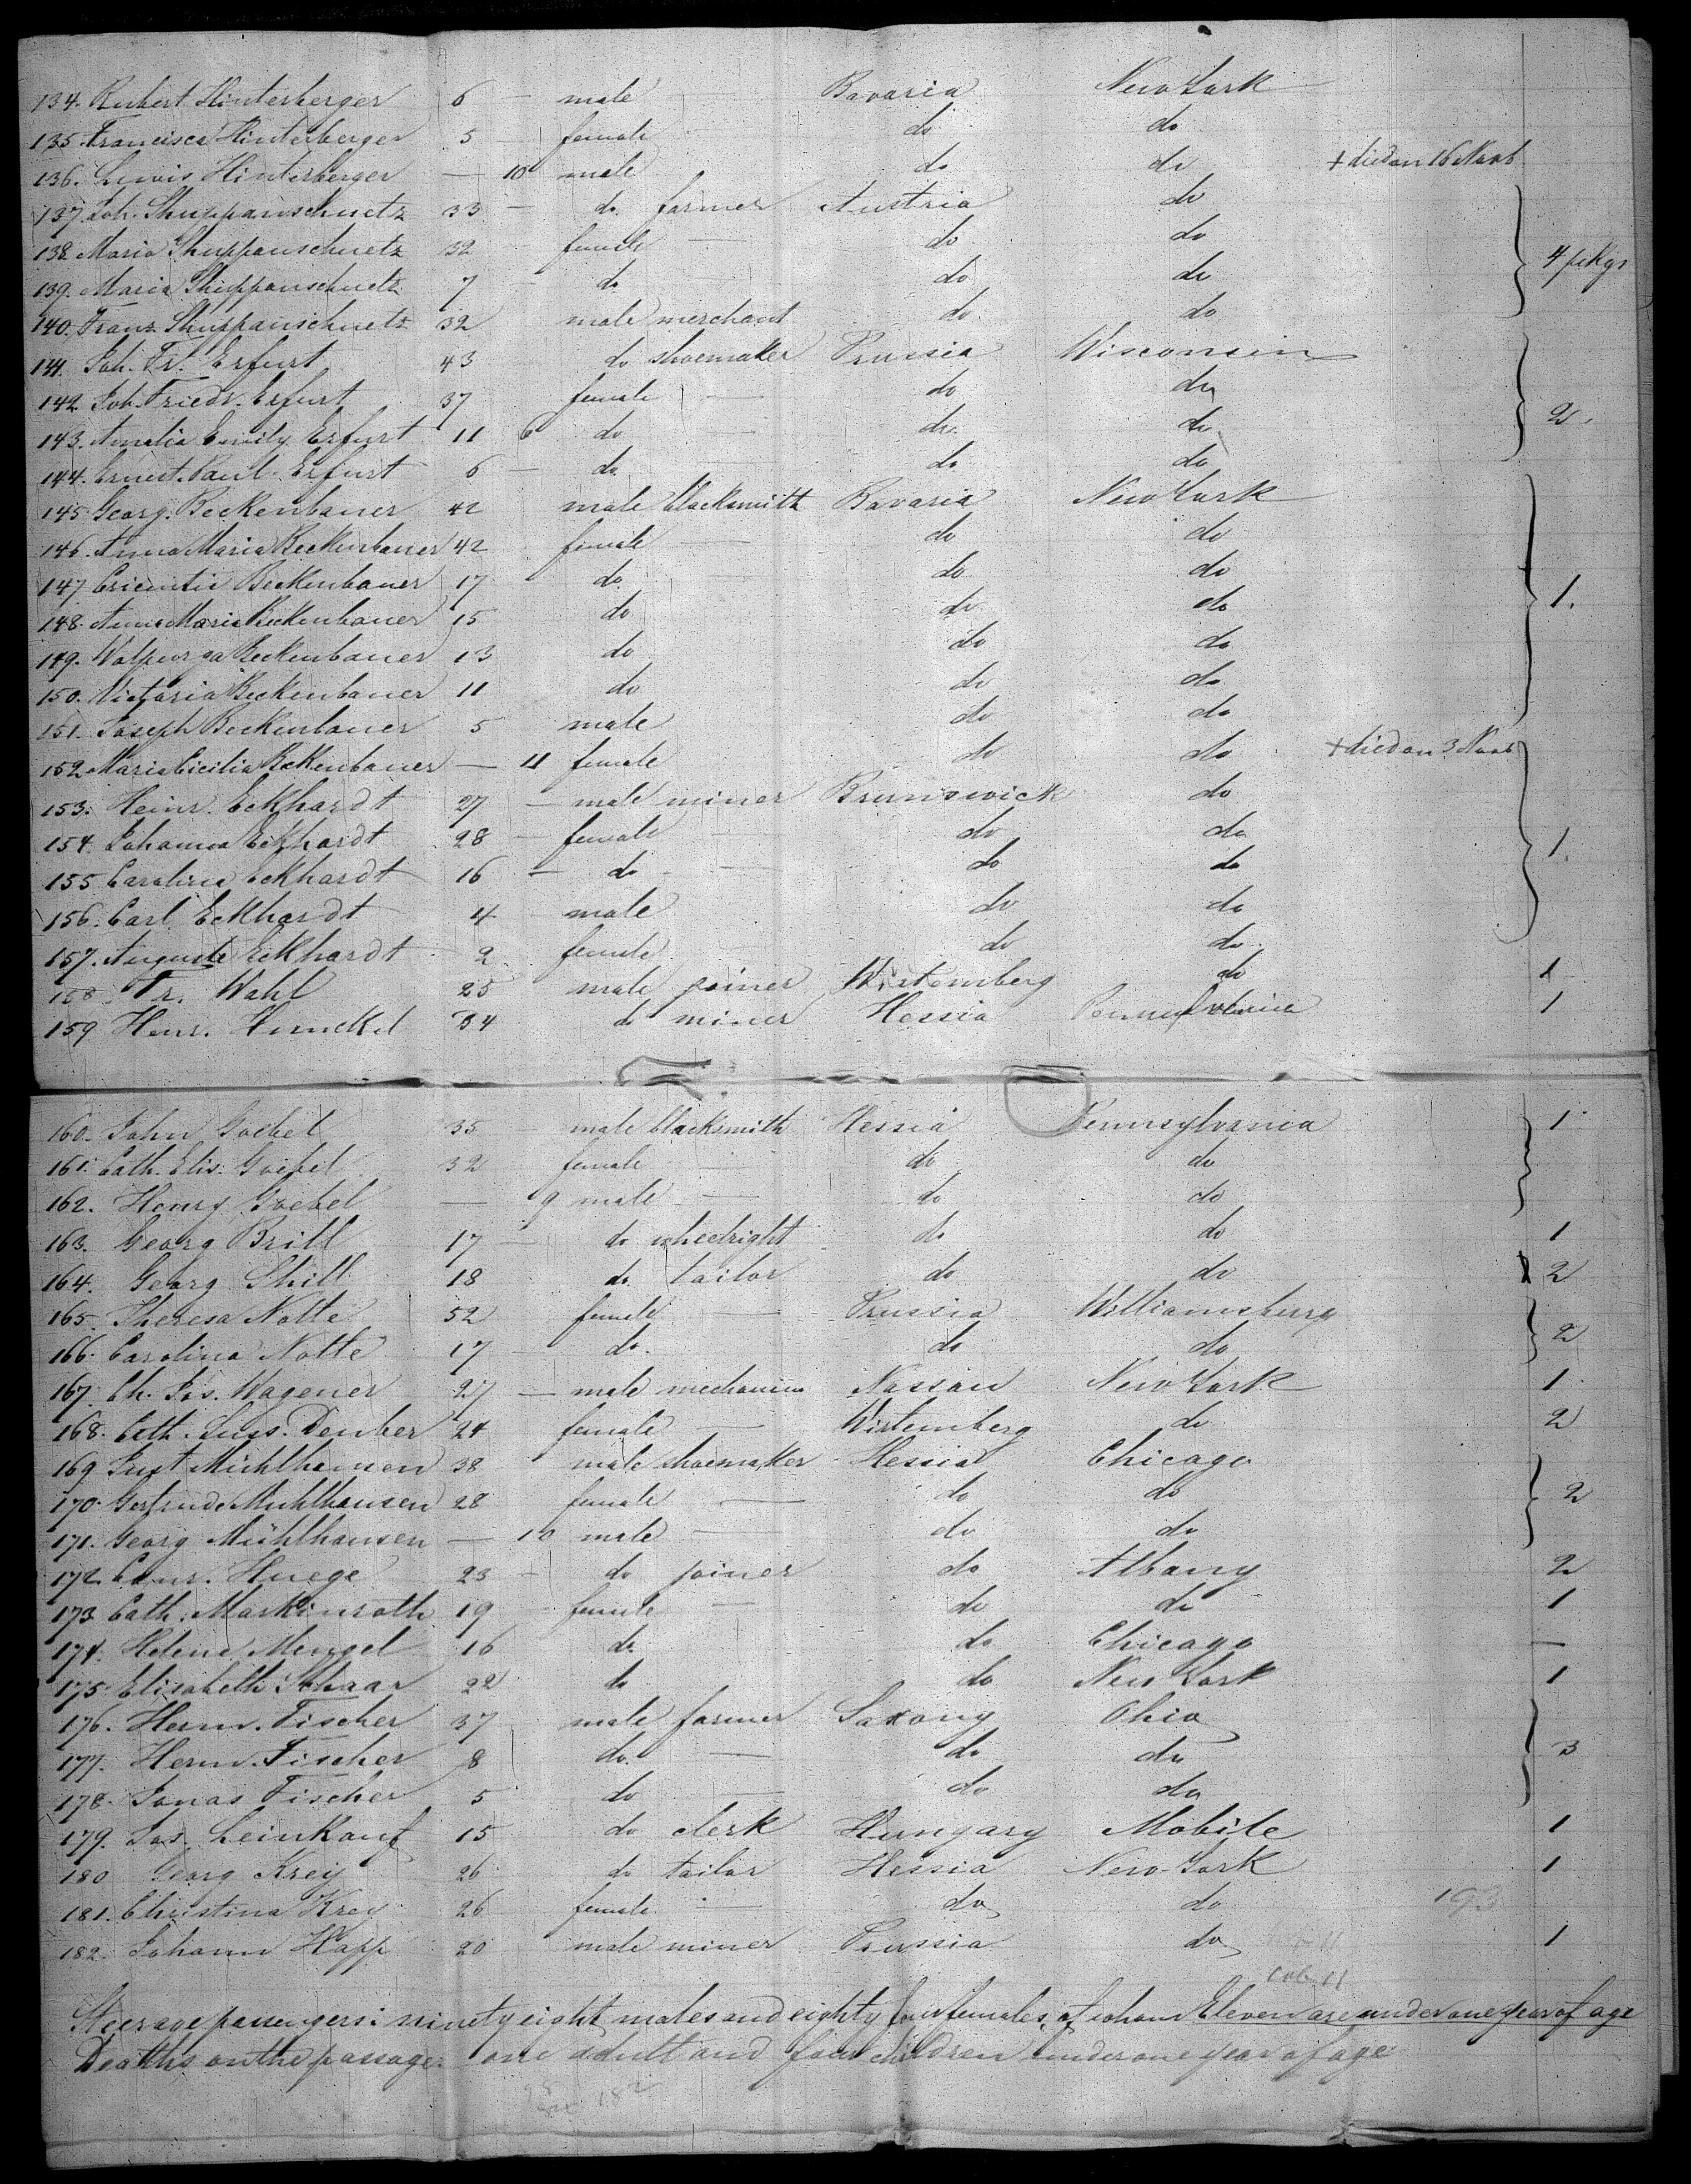 134. Rubert Hinterberger 6 — male — Bavaria New York
135. Francisca Hinterberger 5 — female do do
136. Lewis Hinterberger — 10 male do do + died on 16
137. Joh. Shuppanschuetz 33 — do farmer Austria do
138. Maria Shuppanschuetz 32 female — do do
139. Maria Shuppanschuetz 7 — do — do do 4 pckgs
140. Franz Shuppanschuetz 32 male merchant do do
141. Joh. Fr. Erfurt 43 do shoemaker Prussia Wisconsin
142. Joh. Friedr. Erfurt 37 female — do do
143. Amalia Emily Erfurt 11 6 do — do do 2.
144. Ernest Paul Erfurt 6 — do — do do
145. Georg. Beckenbauer 42 male blacksmith Bavaria New York
146. Anna Maria Beckenbauer 42 female — do do
147. Beckenbauer 17 do do do
148. Anna Maria Beckenbauer 15 do do do 1.
149. Walpurga Beckenbauer 13 do do do
150. Victoria Beckenbauer 11 do do do
151. Joseph Beckenbauer 5 male do do
152. Maria Cicilia Beckenbauer — 11 female do do + died on 3
153. Heinr. Eckhardt 27 — male miner Brunswick do
154. Johanna Eckhardt 28 — female — do do
155. Carolina Eckhardt 16 — do — do do 1.
156. Carl Eckhardt 4 male do do
157. Auguste Eckhardt 2 female do do
158. Fr. Wahl 25 male joiner Wirtemberg do 1
159 Henr. Hunckel 34 do miner Hessia Pennsylvania 1
160. John Goebel 35 — male blacksmith Hessia Pennsylvania 1
161. Cath. Elis. Goebel 32 female — do do
162. Henry Goebel — 9 male — do do
163. Georg Brill 17 do wheelright do do 1
164. Georg Shill 18 do tailor do do 2
165. Theresa Nolte 52 female — Prussia Williamsburg
166. Carolina Nolte 17 — do. do do 2
167. Ch. Jos. Wagener 27 — male mechanim Nassau New York 1
168. Cath. Suss. Denber 24 female — Wirtemberg do 2
169 Just Mühlhausen 38 male shoemaker Hessia Chicago
170. Gertrude Muhlhausen 28 female — do do 2
171. Georg Mühlhausen — 10 male — do do
172. Conr. Huege 23 — do joiner do Albany 2
173 Cath. Markinroth 19 female — do do 1
174. Helene Mengel 16 do. do Chicago —
175. Elisabeth Schaar 22 do do New York 1
176. Herm. Fischer 37 male farmer Saxony Ohio
177. Herm. Fischer 8 do. — do do 3
178. Jonas Fischer 5 do — do do
179. Jos. Leinkauf 15 do clerk Hungary Mobile 1
180 Georg Krey 26 do tailor Hessia New York 1
181. Christina Krey 26 female — do do 193
182. Johann Happ 20 male miner Prussia do 1
Steerage passengers: ninety eight males and eighty four females, of whom Eleven are under one year of age
Deaths on the passage: one adult and four children under one year of age
182